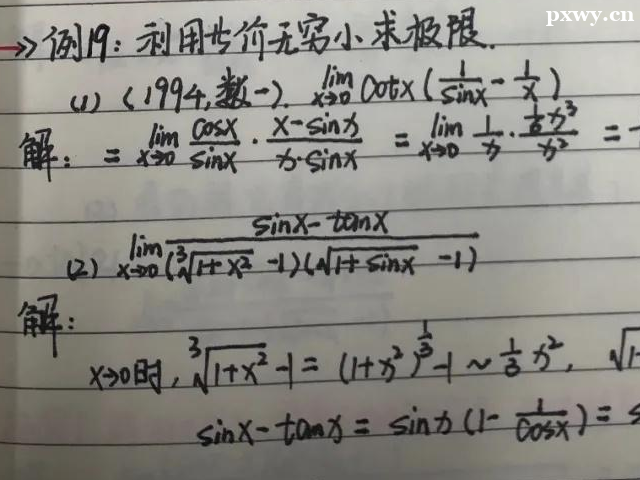 pxwy.cn
→》例19: 利用等价无穷小求极限.
(1) (1994, 数一). lim x→0 cotx (1/sinx - 1/x)
解: = lim x→0 cosx/sinx · x-sinx/x·sinx = lim x→0 1/x · 1/6 x³/x² =
(2) lim x→0 sinx-tanx/(³√1+x² -1)(√1+sinx -1)
解:
x→0时, ³√1+x² -1 = (1+x²)^1/3 -1 ~ 1/3 x²,
sinx-tanx = sinx (1- 1/cosx) =